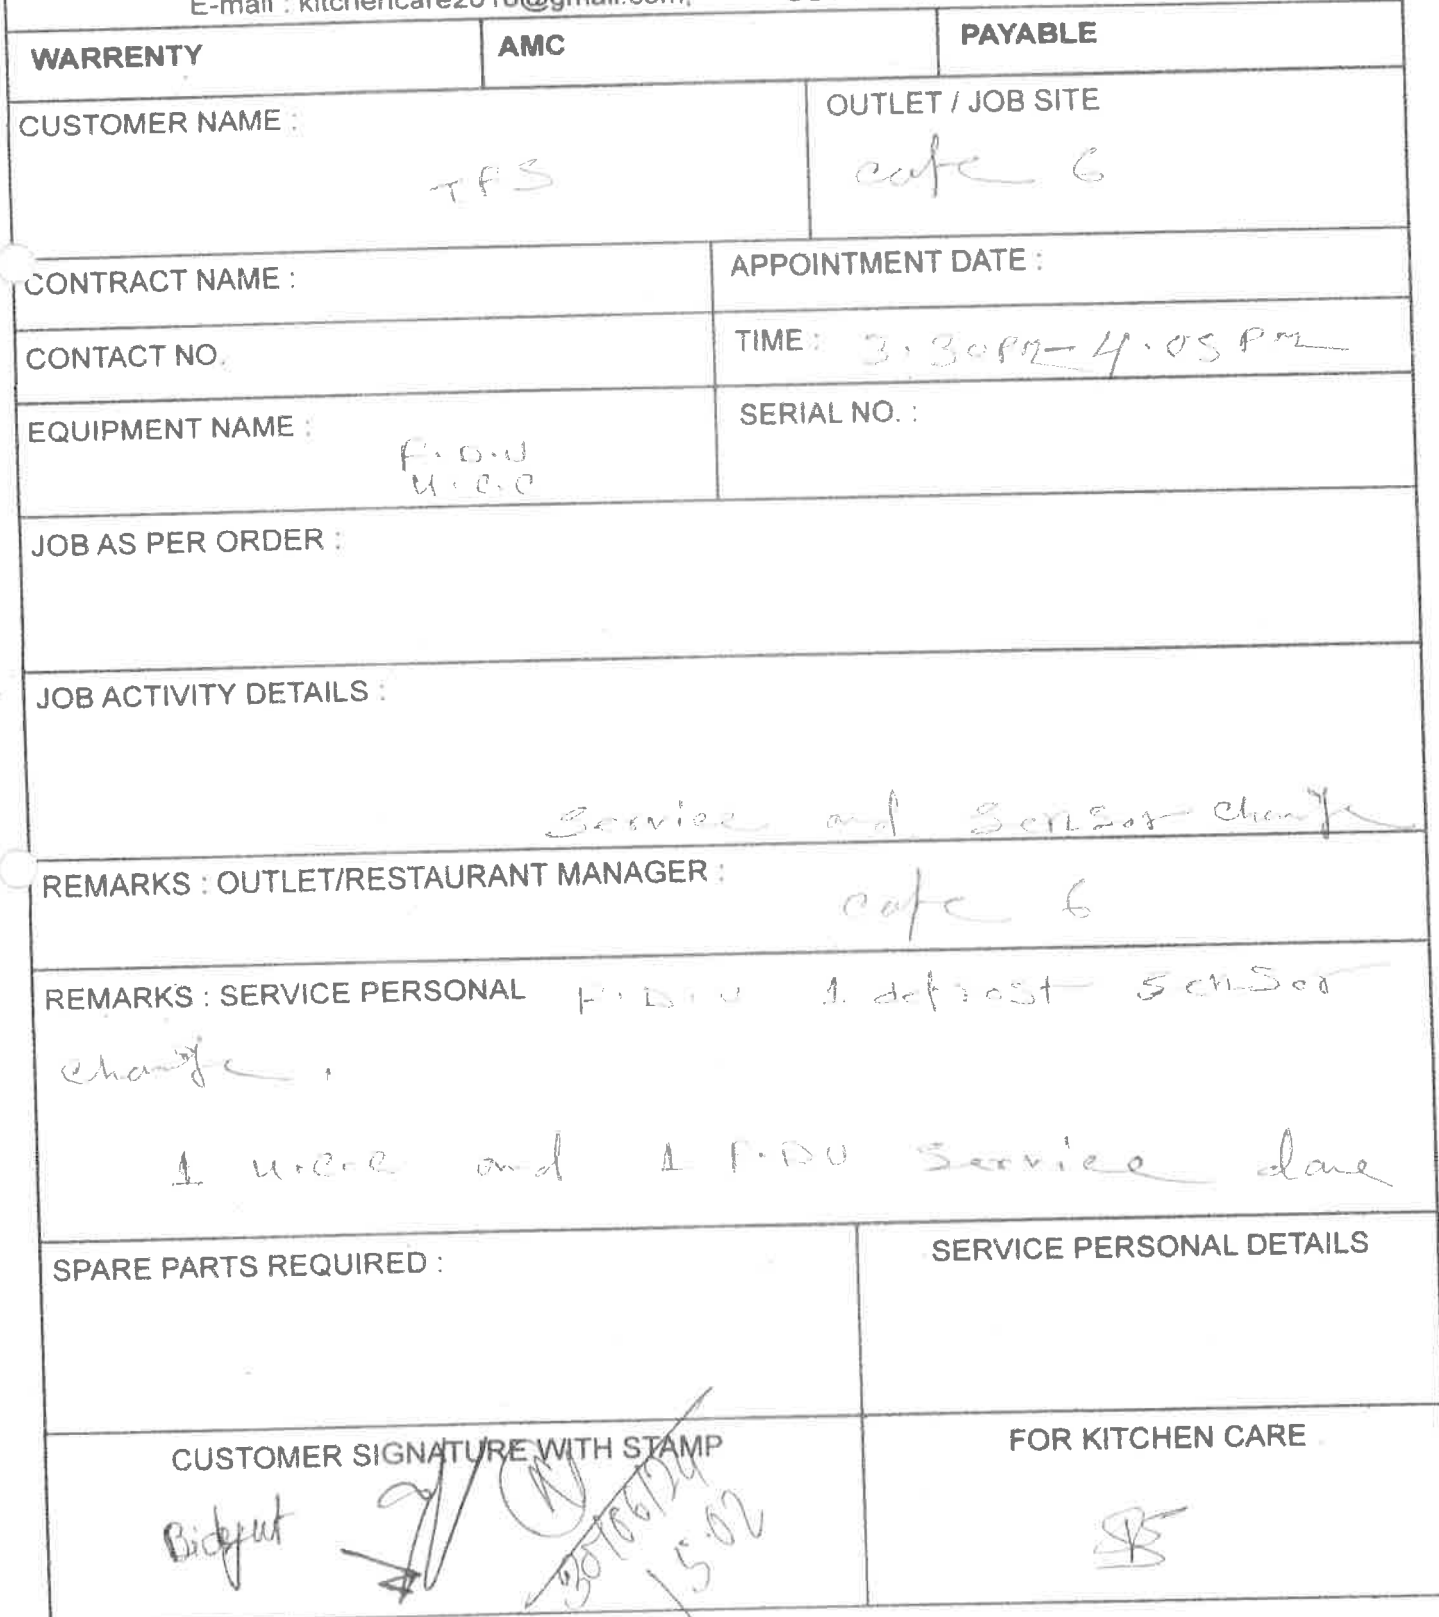 E-mail : kitchencare2010@gmail.com,
WARRENTY AMC PAYABLE
CUSTOMER NAME : OUTLET / JOB SITE
TFS cafe 6
CONTRACT NAME : APPOINTMENT DATE :
CONTACT NO. TIME : 3.30PM-4.05 PM
EQUIPMENT NAME : SERIAL NO. :
F.D.U
U.C.C
JOB AS PER ORDER :
JOB ACTIVITY DETAILS :
Service and Sensor change
REMARKS : OUTLET/RESTAURANT MANAGER : cafe 6
REMARKS : SERVICE PERSONAL F.D.U 1 defrost sensor
change .
1 U.C.C and 1 F.DU Service done
SPARE PARTS REQUIRED : SERVICE PERSONAL DETAILS
CUSTOMER SIGNATURE WITH STAMP FOR KITCHEN CARE
Bidyut
30/06/24
15:02